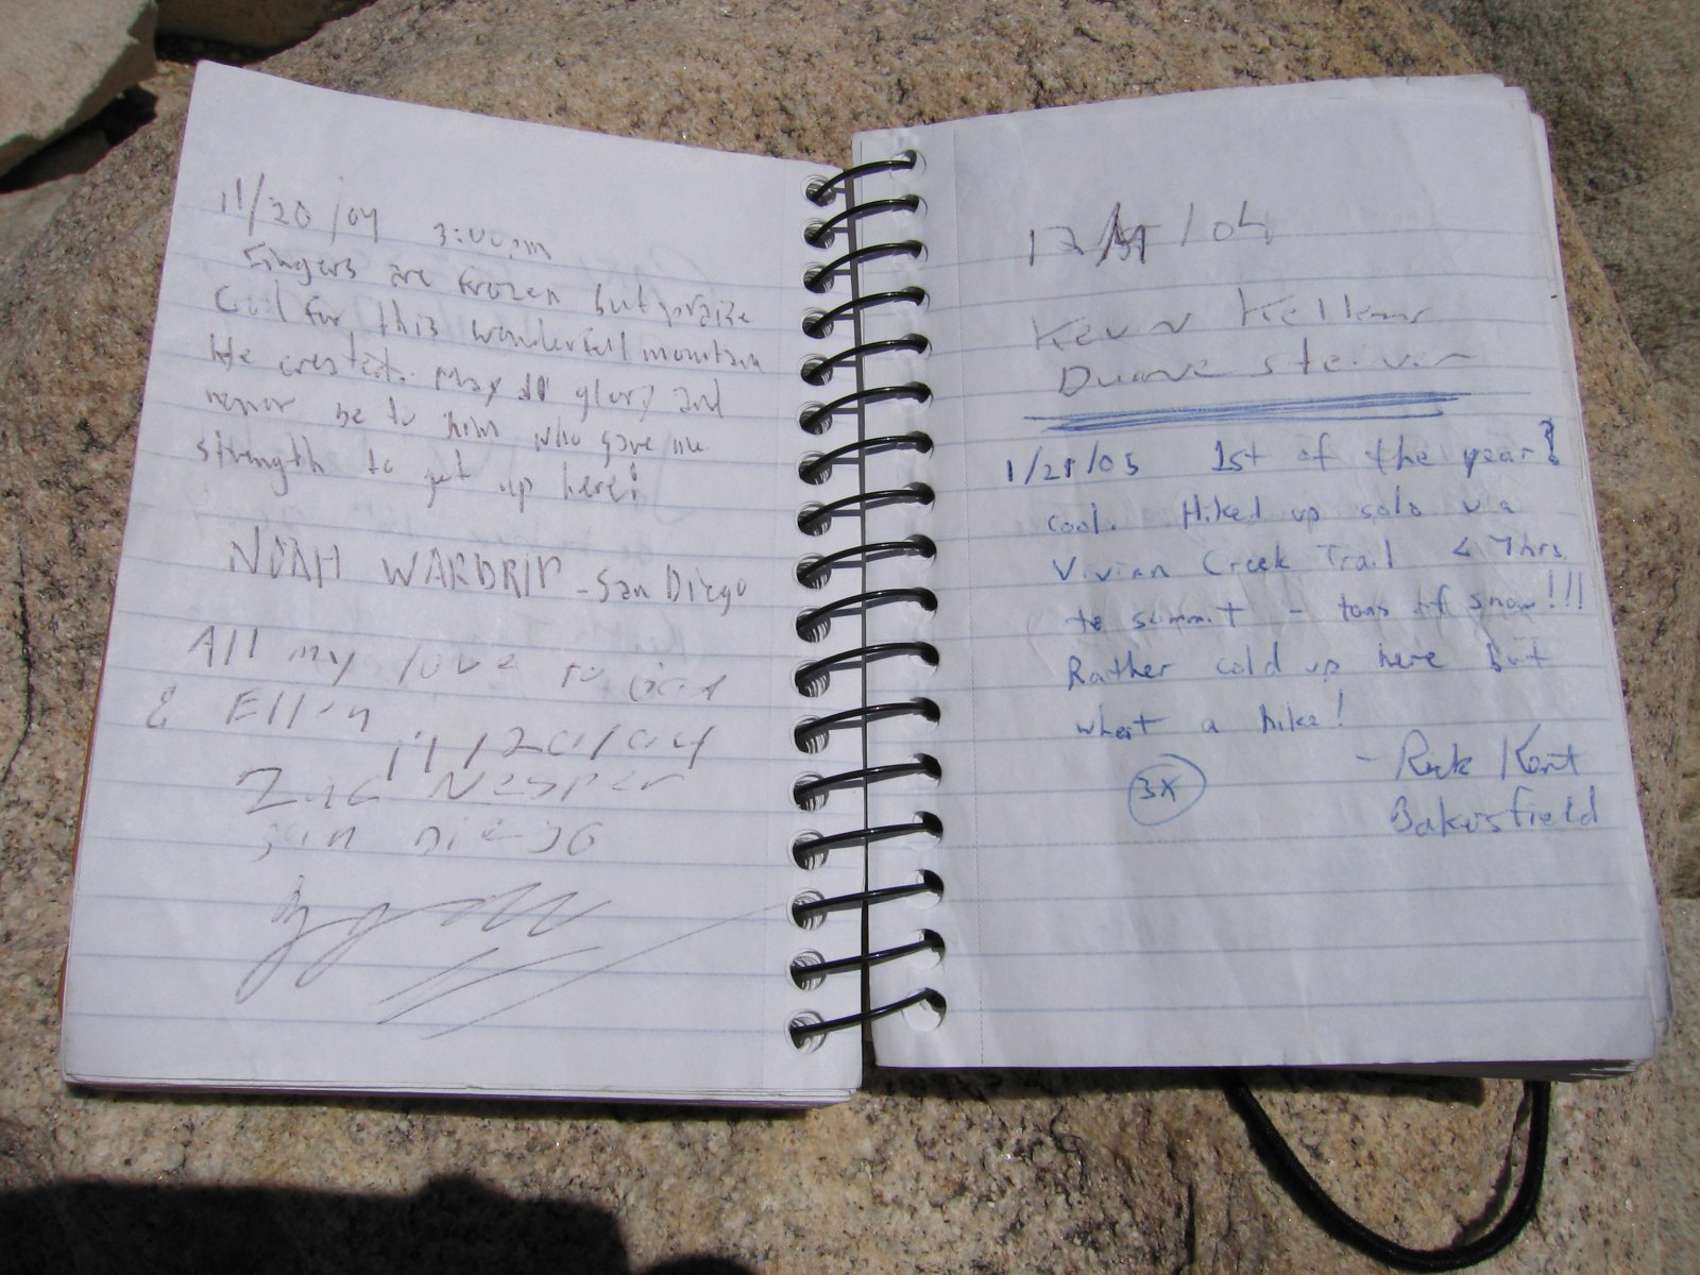 11/20/04 3:00pm
Fingers are frozen but praise
God for this wonderfull mountain
He created. May all glory and
honor be to him who gave me
strength to get up here!
NOAH WARDRIP - San Diego
All my love to
& Ellen
11/20/04
Zac Nesper
San Diego
12/ /04
Kevin Kellems
Duane
1/28/05 1st of the year?
cool. Hiked up solo via
Vivian Creek Trail < 7hrs
to summit - tons of snow!!!
Rather cold up here but
what a hike!
- Rick Kent
3X
Bakersfield